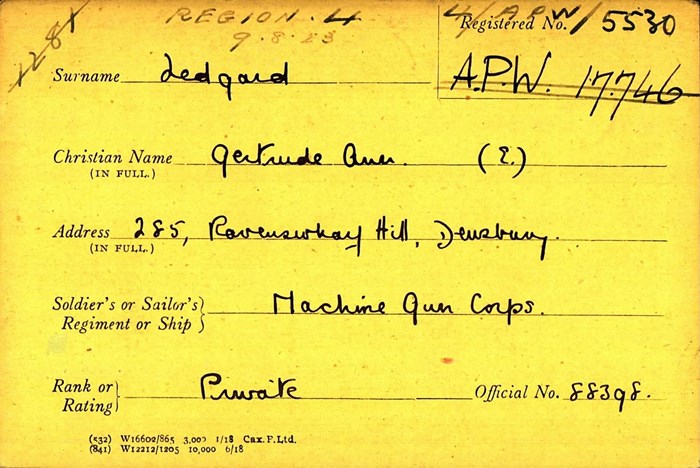 REGION. 4
9.8.23
Registered No. 4/APW/5530
Surname Ledgard
A.P.W. 17746
Christian Name Gertrude Ann. (E.)
(IN FULL.)
Address 285, Ravenswharf Hill, Dewsbury.
(IN FULL.)
Soldier's or Sailor's} Machine Gun Corps.
Regiment or Ship
Rank or} Private Official No. 88398.
Rating
(532) W16602/865 3,000 1/18 Cax.F.Ltd.
(841) W12212/1205 10,000 6/18